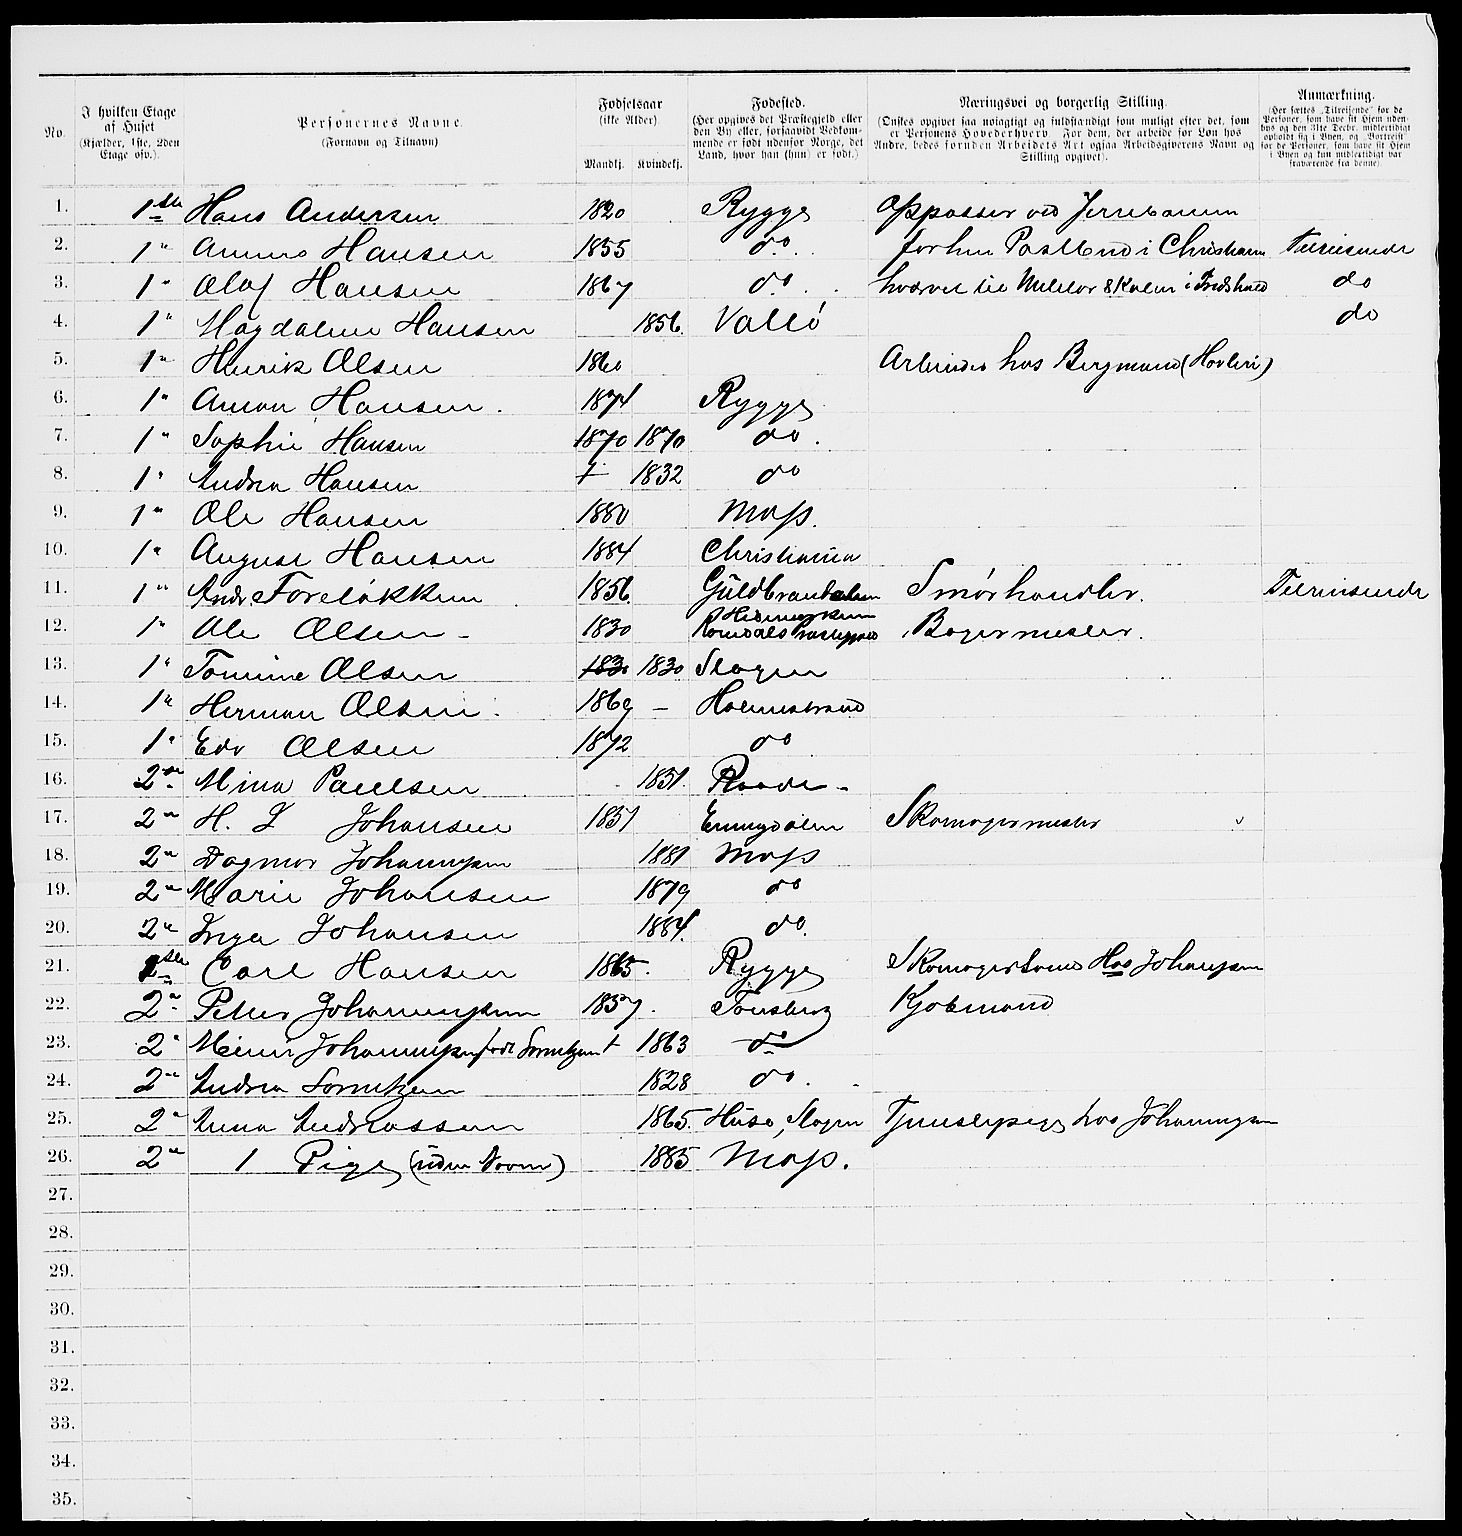 No. I hvilken Etage af Huset (Kjælder, 1ste, 2den Etage osv.). Personernes Navne. (Fornavn og Tilnavn) Fødselsaar (ikke Alder). Mandkj. Kvindekj. Fødested. (Her opgives det Præstegjeld eller den By eller, forsaavidt Vedkommende er født udenfor Norge, det Land, hvor han (hun) er født.) Næringsvei og borgerlig Stilling. (Ønskes opgivet saa nøiagtigt og fuldstændigt som muligt efter det, som er Personens Hovederhverv. For dem, der arbeide for Løn hos Andre, bedes foruden Arbeidets Art ogsaa Arbeidsgiverens Navn og Stilling opgivet). Anmærkning. (Her sættes „Tilreisende" for de Personer, som have sit Hjem udenbys og den 31te Decbr. midlertidigt opholdt sig i Byen, og „Bortreist" for de Personer, som have sit Hjem i Byen og kun midlertidigt var fraværende fra denne).
1. 1ste Hans Andersen 1820 Rygge Oppasser ved Jernbanen
2. 1" Hansen 1855 do. forhen Postbud i Christiania Tilreisende
3. 1" Olaf Hansen 1867 do. til Militær Skolen i Fredshald do
4. 1" Magdaline Hansen 1856. Vallö do
5. 1" Henrik Olsen 1860 Arbeider hos Bergmand (Høvleri)
6. 1" Anton Hansen. 1874 Rygge
7. 1" Sophie Hansen 1870 1870 do.
8. 1" Andrea Hansen + 1832 do
9. 1" Ole Hansen 1880 Moss.
10. 1" August Hansen 1884 Christiania
11. 1" Andr Foreløkken 1856. Guldbrandsdalen Smørhandler. Tilreisende
12. 1" Ole Olsen - 1830 Hedemarken Romdals Præstegjæld Bagermester.
13. 1" Tomine Olsen 1830 1830 Slagen
14. 1" Herman Olsen. 1869 - Holmestrand
15. 1" Edv Olsen 1872 do
16. 2den Mina Paulsen 1851. Raade -
17. 2" H. L Johansen 1851 Enningdalen Skomagermester
18. 2" Dagmar Johannesen 1881 Moss
19. 2" Marie Johansen 1879 do
20. 2" Inga Johansen 1884. do.
21. 1ste Carl Hansen 1865. Rygge Skomagersvend Hos Johansen
22. 2" Peter Johannessen 1857. Tönsberg Kjøbmand
23. 2" Johannessen født Lorentzen + 1863 do
24. 2" Andrea Lorentzen 1828 do.
25. 2" Anna Andreassen 1865. Huse, Slagen Tjenestepige hos Johannessen
26. 2" 1 Pige (uden Navn) 1885 Moss.
27.
28.
29.
30.
31.
32.
33.
34.
35.